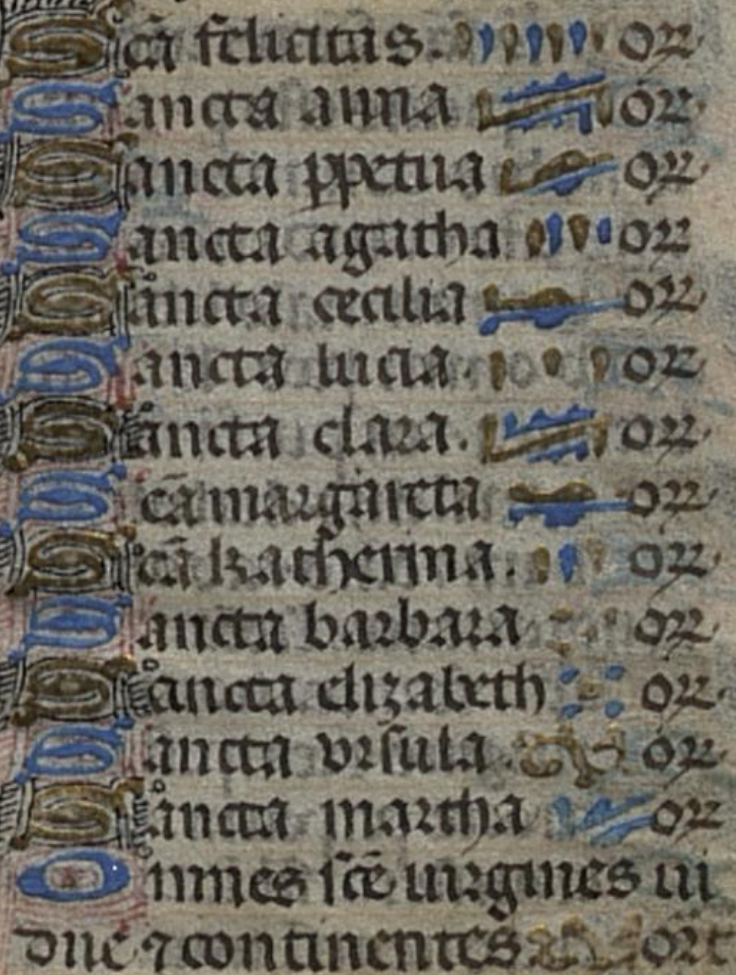 Scā felicitas. or
Sancta anna or
Sancta ꝑpetua or
Sancta agatha or
Sancta cecilia or
Sancta lucia. or
Sancta clara. or
Scā margareta or
Scā katherina. or
Sancta barbara or
Sancta elizabeth or
Sancta vrsula or
Sancta martha or
Omnes scē uirgines ui
due ⁊ continentes. ort